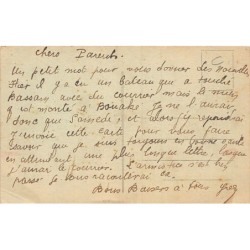 Chers Parents
Un petit mot pour vous donner des nouvelles
Hier il y a eu un bateau qui a touché
Bassam avec du courrier mais le
qui monte à Bouaké je ne l'aurai
donc que Samedi, et alors je repondrai
J'envoie cette carte pour vous faire
savoir que je suis toujours en bonne santé
en attendant une plus longue lettre, lorsque
j'aurai le courrier. L'armistice s'est bien
passé je vous raconterai ce.
Bons Baisers à tous